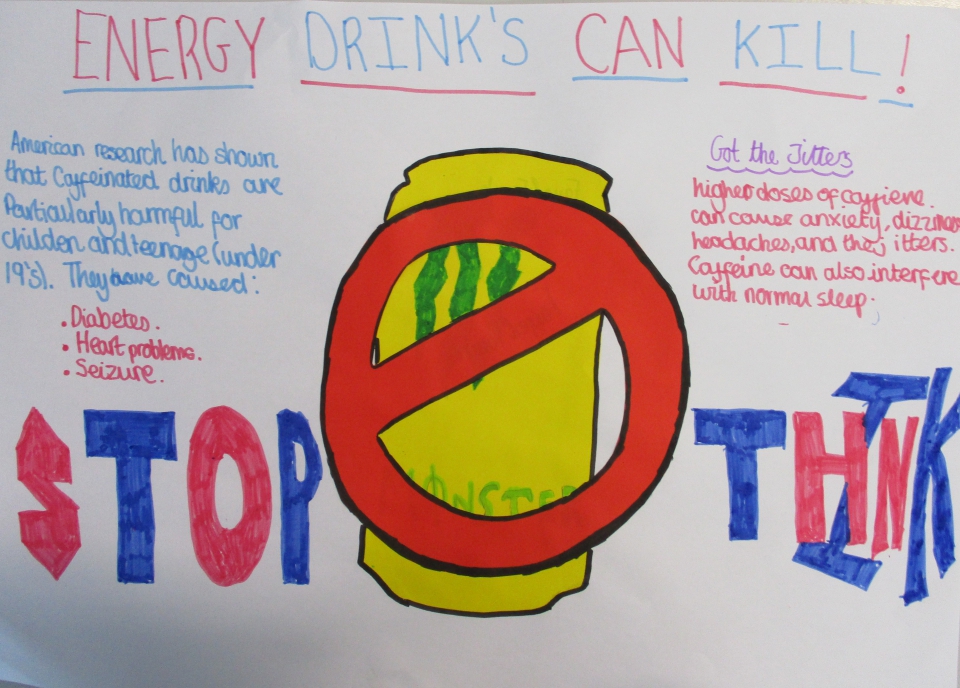 ENERGY DRINK'S CAN KILL!
American research has shown
that Caffeinated drinks are
Particularly harmful for
children and teenage (under
19's). They have caused:
• Diabetes.
• Heart problems.
• Seizure.
Got the Jitters
higher doses of caffiene.
can cause anxiety, dizziness
headaches, and the jitters.
Caffeine can also interfere
with normal sleep.
STOP
THINK
MONSTER